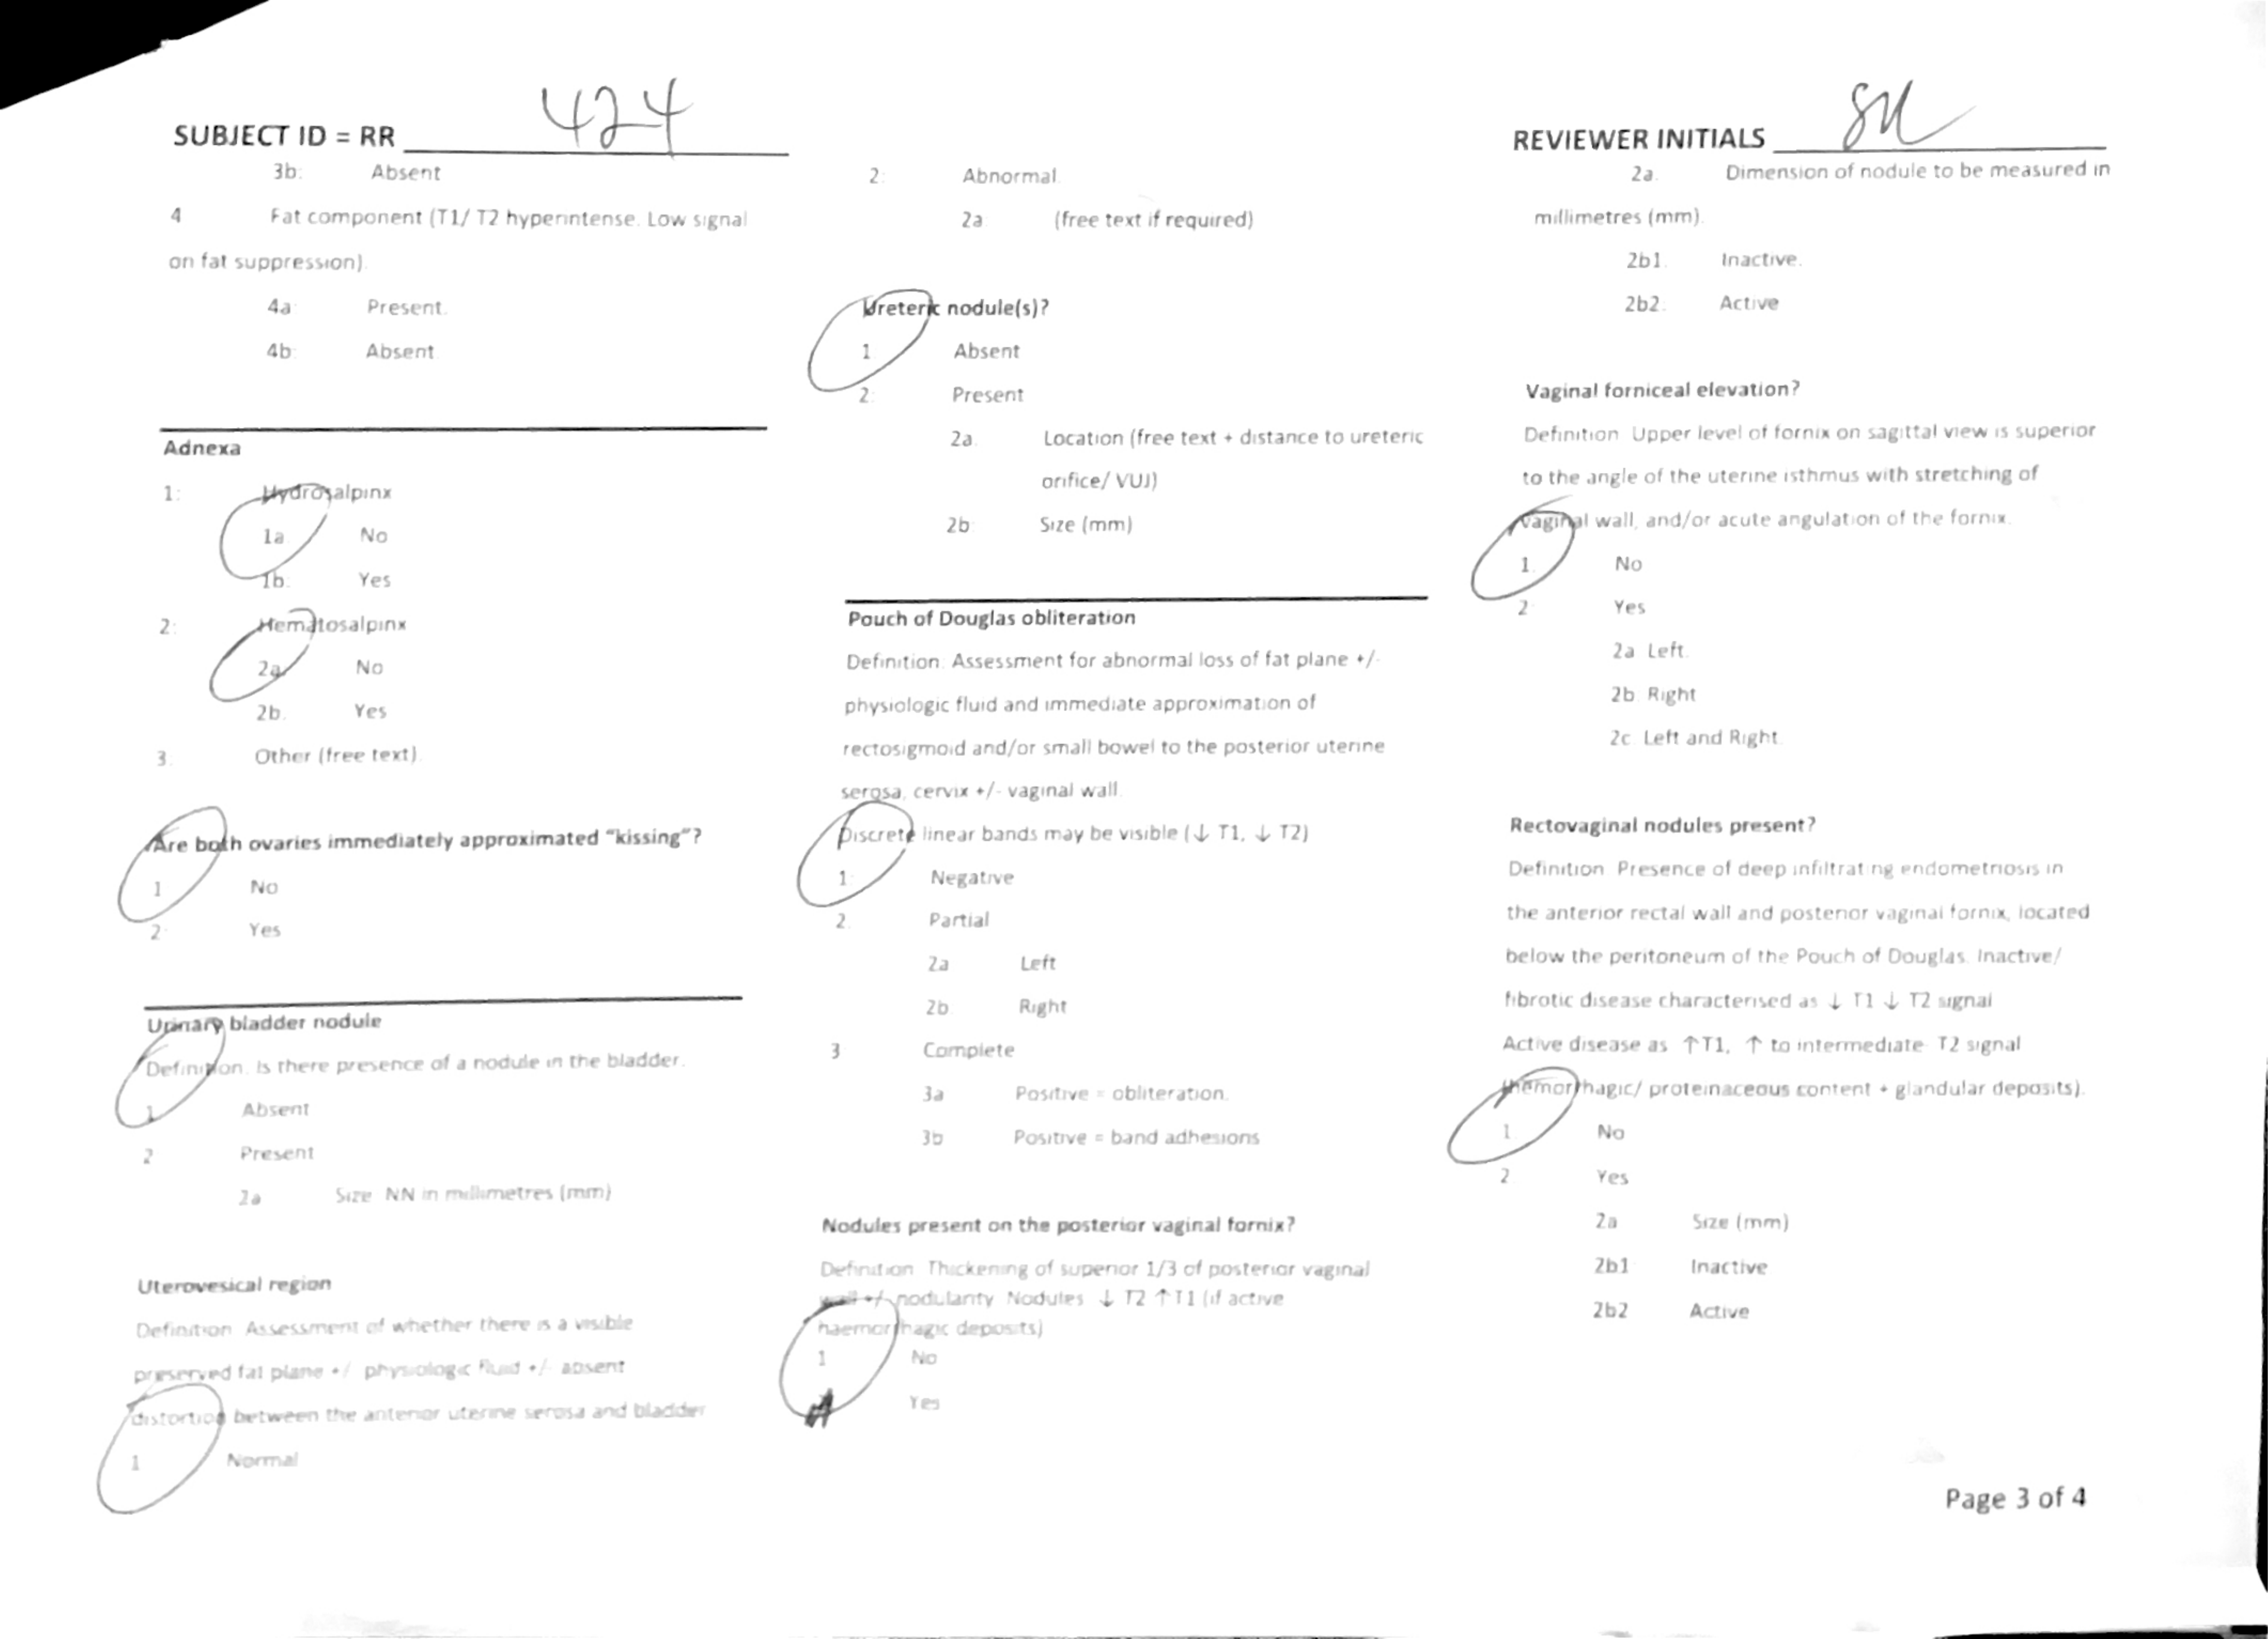 SUBJECT ID = RR 424
REVIEWER INITIALS
3b: Absent
4 Fat component (T1/ T2 hyperintense. Low signal
on fat suppression).
4a: Present.
4b: Absent
Adnexa
1: Hydrosalpinx
1a. No
1b: Yes
2: Hematosalpinx
2a No
2b. Yes
3: Other (free text).
Are both ovaries immediately approximated "kissing"?
1 No
2: Yes
Urinary bladder nodule
Definition: Is there presence of a nodule in the bladder.
1 Absent
2 Present
2a Size NN in millimetres (mm)
Uterovesical region
Definition Assessment of whether there is a visible
preserved fat plane +/- physiologic fluid +/- absent
distortion between the anterior uterine serosa and bladder
1 Normal
2: Abnormal.
2a (free text if required)
Ureteric nodule(s)?
1 Absent
2: Present
2a. Location (free text + distance to ureteric
orifice/ VUJ)
2b: Size (mm)
Pouch of Douglas obliteration
Definition: Assessment for abnormal loss of fat plane +/-
physiologic fluid and immediate approximation of
rectosigmoid and/or small bowel to the posterior uterine
serosa, cervix +/- vaginal wall.
Discrete linear bands may be visible (↓ T1, ↓ T2)
1: Negative
2. Partial
2a Left
2b Right
3 Complete
3a Positive = obliteration.
3b Positive = band adhesions
Nodules present on the posterior vaginal fornix?
Definition Thickening of superior 1/3 of posterior vaginal
wall +/- nodularity Nodules ↓ T2 ↑T1 (if active
haemorrhagic deposits)
1 No
Yes
2a. Dimension of nodule to be measured in
millimetres (mm).
2b1. Inactive.
2b2. Active
Vaginal forniceal elevation?
Definition Upper level of fornix on sagittal view is superior
to the angle of the uterine isthmus with stretching of
vaginal wall, and/or acute angulation of the fornix.
1. No
2 Yes
2a Left.
2b Right
2c Left and Right.
Rectovaginal nodules present?
Definition Presence of deep infiltrating endometriosis in
the anterior rectal wall and posterior vaginal fornix, located
below the peritoneum of the Pouch of Douglas. Inactive/
fibrotic disease characterised as ↓ T1 ↓ T2 signal
Active disease as ↑T1, ↑ to intermediate T2 signal
(hemorrhagic/ proteinaceous content + glandular deposits).
1 No
2 Yes
2a Size (mm)
2b1 Inactive
2b2 Active
Page 3 of 4